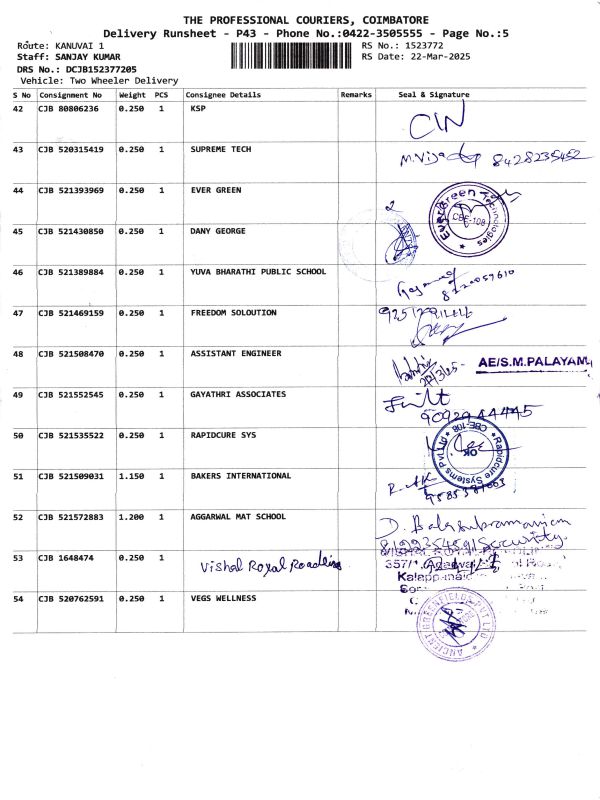 THE PROFESSIONAL COURIERS, COIMBATORE
Delivery Runsheet - P43 - Phone No.:0422-3505555 - Page No.:5
Route: KANUVAI 1 RS No.: 1523772
Staff: SANJAY KUMAR RS Date: 22-Mar-2025
DRS No.: DCJB152377205
Vehicle: Two Wheeler Delivery
S No Consignment No Weight PCS Consignee Details Remarks Seal & Signature
42 CJB 80806236 0.250 1 KSP
43 CJB 520315419 0.250 1 SUPREME TECH 8428235452
44 CJB 521393969 0.250 1 EVER GREEN EverGreen Technologies CBE-108
45 CJB 521430850 0.250 1 DANY GEORGE
46 CJB 521389884 0.250 1 YUVA BHARATHI PUBLIC SCHOOL
47 CJB 521469159 0.250 1 FREEDOM SOLOUTION
48 CJB 521508470 0.250 1 ASSISTANT ENGINEER AE/S.M.PALAYAM
49 CJB 521552545 0.250 1 GAYATHRI ASSOCIATES 9092944445
50 CJB 521535522 0.250 1 RAPIDCURE SYS Rapidcure Systems Pvt Ltd CBE-108 OK
51 CJB 521509031 1.150 1 BAKERS INTERNATIONAL
52 CJB 521572883 1.200 1 AGGARWAL MAT SCHOOL D. Balasubramaniam
Security.
53 CJB 1648474 0.250 1 Vishal Royal Roadlines
54 CJB 520762591 0.250 1 VEGS WELLNESS ANCIENT GREENFIELDS PVT LTD